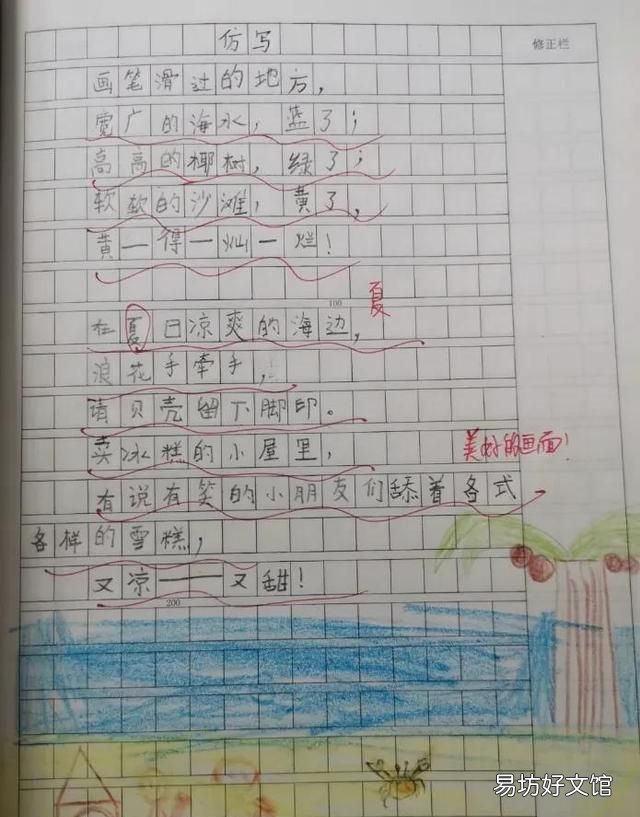 仿写
修正栏
画笔滑过的地方，
宽广的海水，蓝了；
高高的椰树，绿了；
软软的沙滩，黄了，
黄一得一灿一烂！
100
夏
在夏日凉爽的海边，
浪花手牵手，
请贝壳留下脚印。
卖冰糕的小屋里，
美好的画面！
有说有笑的小朋友们舔着各式
各样的雪糕，
又凉——又甜！
200
易坊好文馆